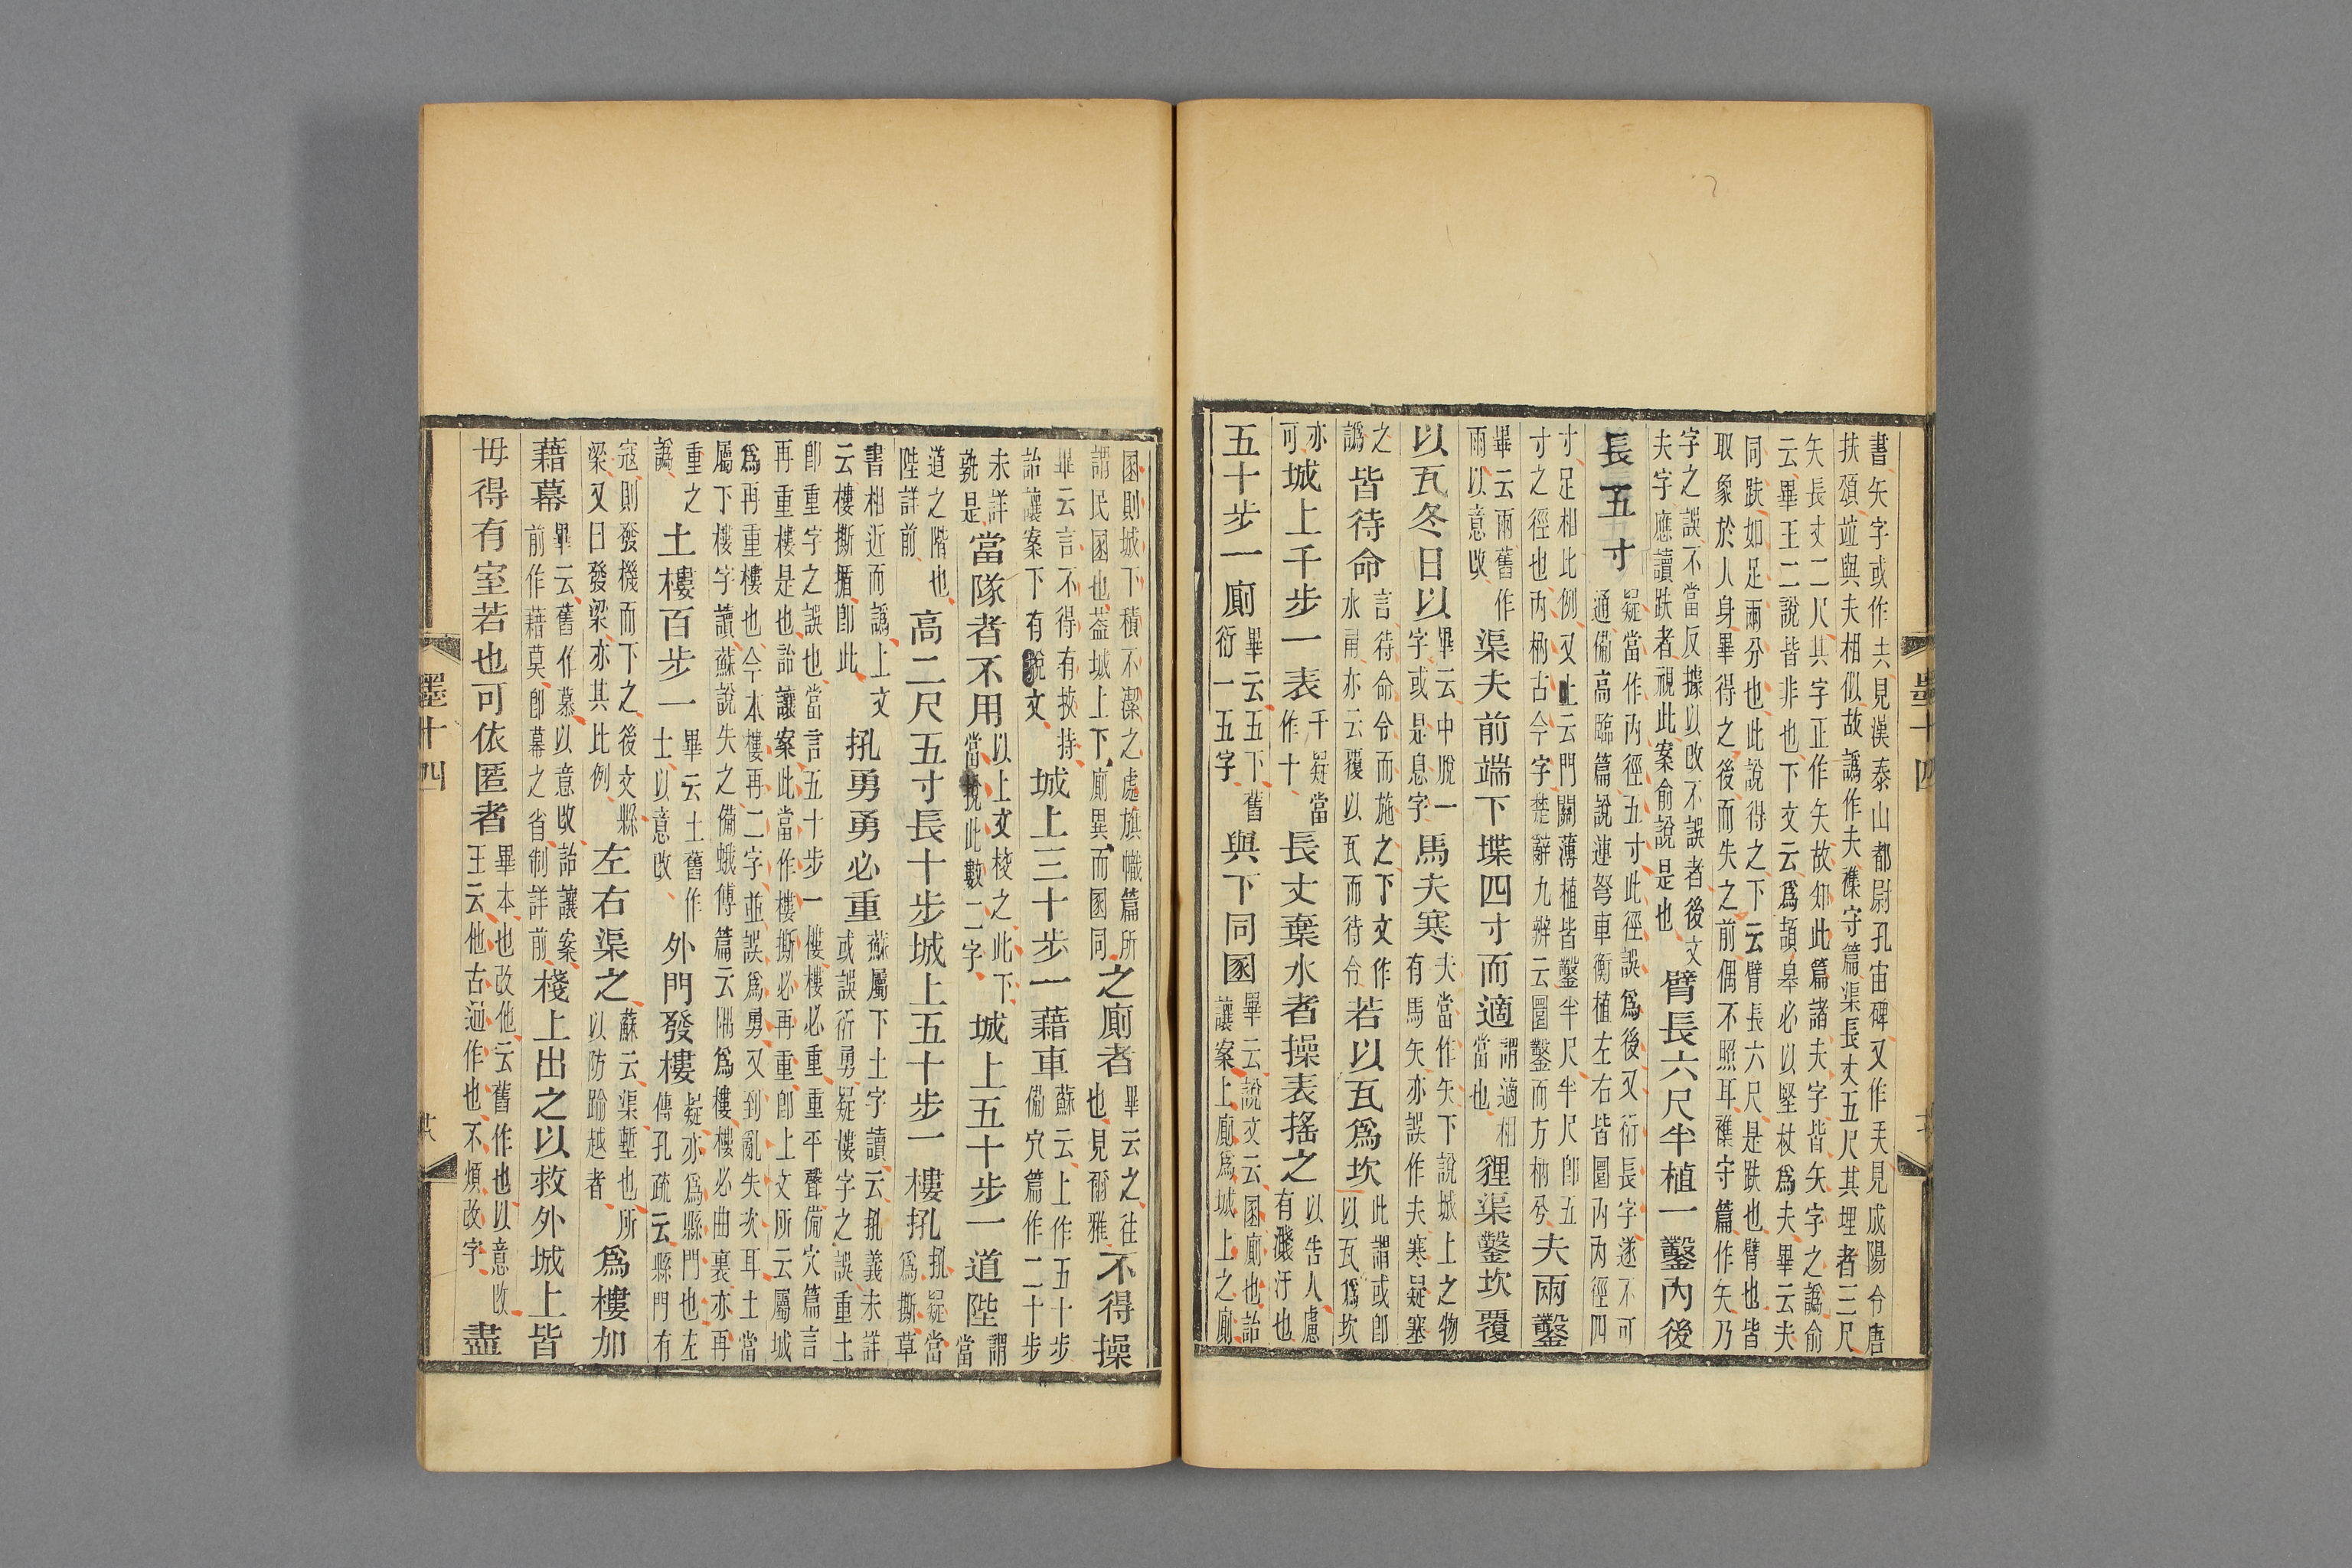 書矢字或作𡗗見漢泰山都尉孔宙碑又作𡗜見成陽令唐
扶頌竝與夫相似故譌作夫襍守篇渠長丈五尺其埋者三尺
矢長丈二尺其字正作矢故知此篇諸夫字皆矢字之譌俞
云畢王二說皆非也下文云爲頡皋必以堅杖爲夫畢云夫
同趺如足兩分也此說得之下云臂長六尺是趺也臂也皆
取象於人身畢得之後而失之前偶不照耳襍守篇作矢乃
字之誤不當反據以改不誤者後文夫字應讀趺者視此案俞說是也臂長六尺半植一鑿內後
長五寸疑當作內徑五寸此徑誤爲後又衍長字遂不可通備高臨篇說連弩車衡植左右皆圜內內徑四
寸足相比例又上云門關薄植皆鑿半尺半尺卽五寸之徑也內枘古今字楚辭九辯云圜鑿而方枘兮夫兩鑿
畢云兩舊作雨以意改渠夫前端下堞四寸而適謂適相當也貍渠鑿坎覆
以瓦冬日以畢云中脫一字或是息字馬夫寒夫當作矢下說城上之物有馬矢亦誤作夫寒疑塞
之譌皆待命言待命令而施之下文作水甬亦云覆以瓦而待令若以瓦爲坎此謂或卽以瓦爲坎
亦可城上千步一表千疑當作十長丈棄水者操表搖之以告人慮有濺汙也
五十步一廁畢云五下舊衍一五字與下同圂畢云說文云圂廁也詒讓案上廁爲城上之廁
圂則城下積不潔之處旗幟篇所謂民圂也葢城上下廁異而圂同之廁者畢云之往也見爾雅不得操
畢云言不得有挾持詒讓案下有脫文城上三十步一藉車蘇云上作五十步備穴篇作二十步
未詳孰是當隊者不用以上文校之此下當挩此數二字城上五十步一道陛謂當
道之階也陛詳前高二尺五寸長十步城上五十步一樓㧉㧉疑當爲撕草
書相近而譌上文云樓撕揗卽此㧉勇勇必重蘇屬下土字讀云㧉義未詳或誤衍勇疑樓字之誤重土
卽重字之誤也當言五十步一樓樓必重重平聲備穴篇言再重樓是也詒讓案此當作樓撕必再重卽上文所云屬城
爲再重樓也今本樓再二字並誤爲勇又到亂失次耳土當屬下樓字讀蘇說失之備蛾傅篇云隅爲樓樓必曲裏亦再
重之譌土樓百步一畢云土舊作士以意改外門發樓疑亦爲縣門也左傳孔疏云縣門有
寇則發機而下之後文縣梁又曰發梁亦其比例左右渠之蘇云渠塹也所以防踰越者爲樓加
藉幕畢云舊作慕以意改詒讓案前作藉莫卽幕之省制詳前棧上出之以救外城上皆
毋得有室若也可依匿者畢本也改他云舊作也以意改王云他古通作也不煩改字盡
墨十四
廿八